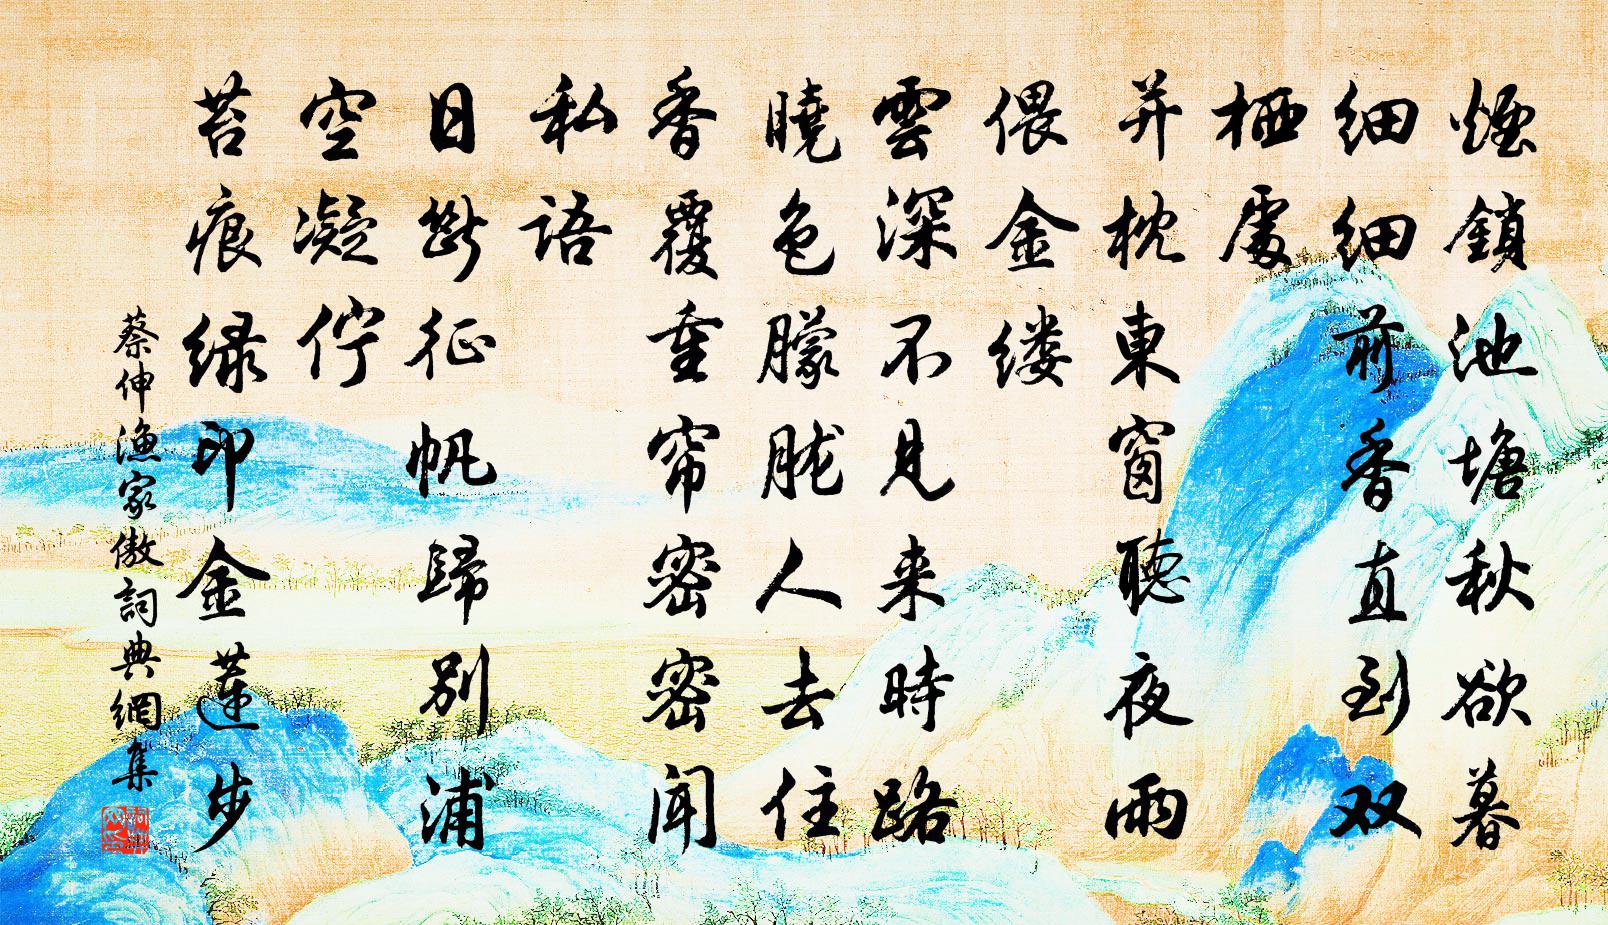 煙鎖池塘秋欲暮
细细前香直到双
栖處
并枕東窗聽夜雨
偎金缕
雲深不见来時路
曉色朦胧人去住
香覆重帘密密闻
私語
目斷征帆歸别浦
空凝佇
苔痕绿印金蓮步
蔡伸渔家傲詞典網集